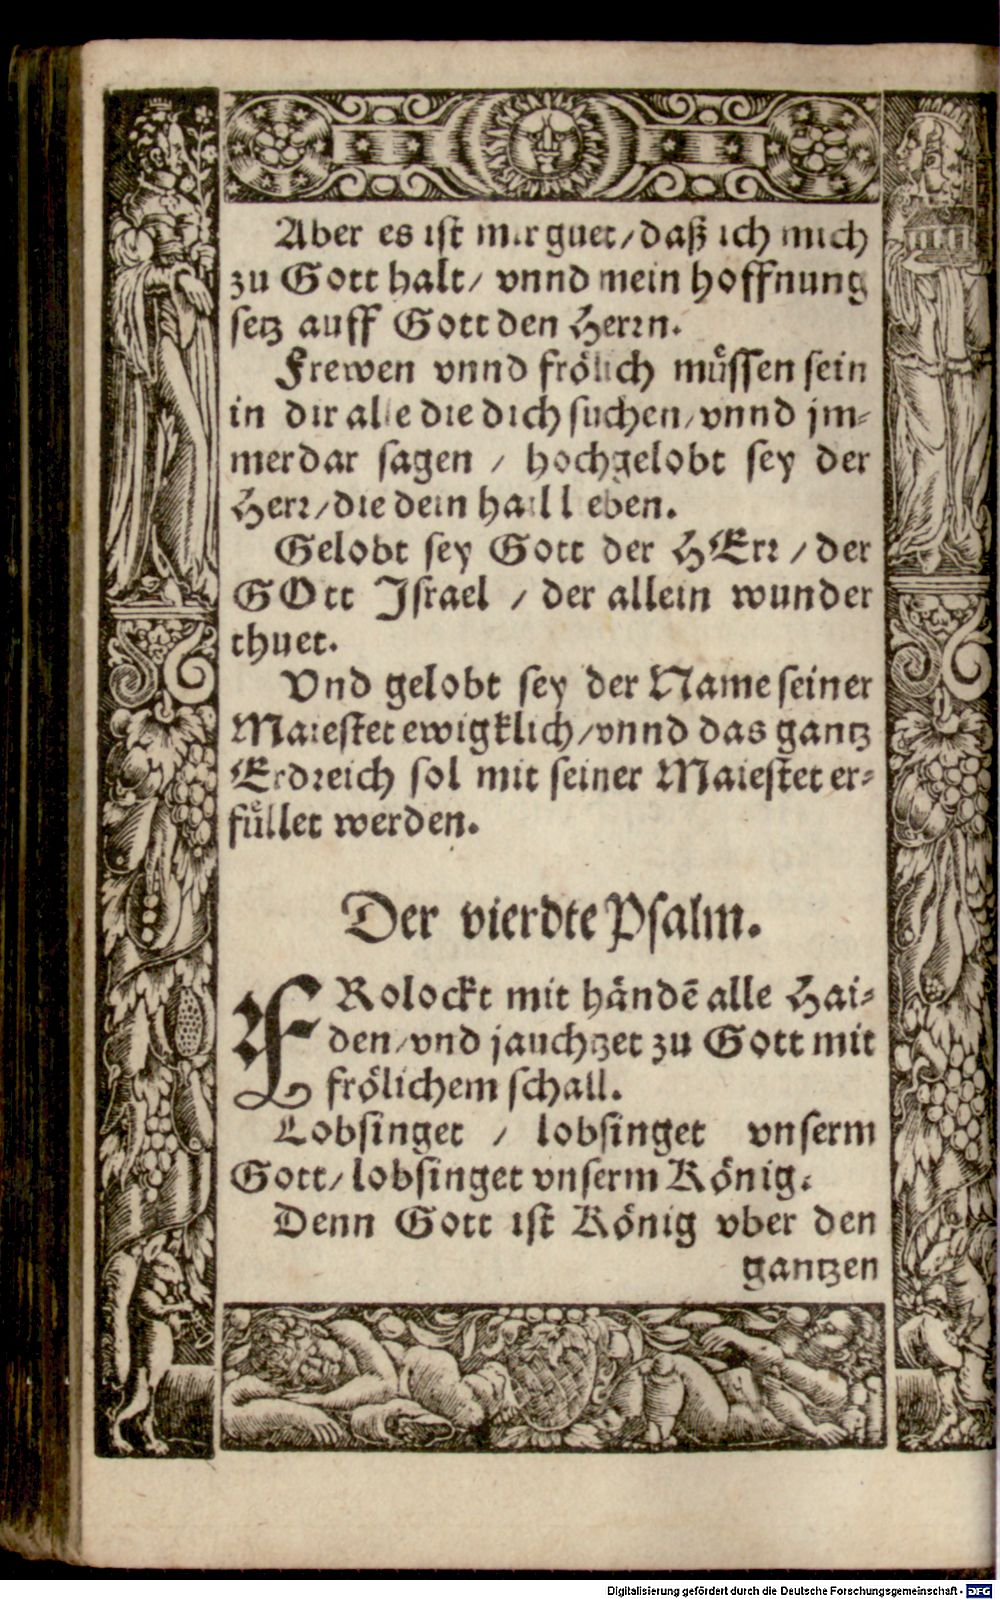 Aber es ist mir guet/daß ich mich
zu Gott halt/ vnnd mein hoffnung
setz auff Gott den Herrn.
Frewen vnnd froͤlich muͤssen sein
in dir alle die dich suchen/vnnd jm-
merdar sagen / hochgelobt sey der
Herr/die dein hail lieben.
Gelobt sey Gott der HErr / der
GOtt Israel / der allein wunder
thuet.
Vnd gelobt sey der Name seiner
Maiestet ewigklich/vnnd das gantz
Erdreich sol mit seiner Maiestet er-
fuͤllet werden.
Der vierdte Psalm.
FRolockt mit haͤndē alle Hai-
den/vnd jauchtzet zu Gott mit
froͤlichem schall.
Lobsinget / lobsinget vnserm
Gott/lobsinget vnserm Koͤnig.
Denn Gott ist Koͤnig vber den
gantzen
Digitalisierung gefördert durch die Deutsche Forschungsgemeinschaft - DFG